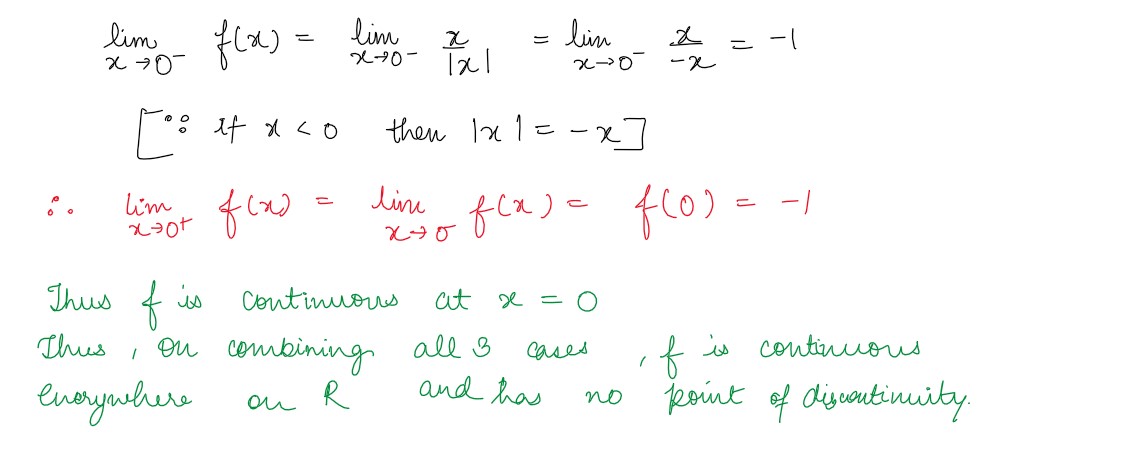 lim x→0⁻ f(x) = lim x→0⁻ x/|x| = lim x→0⁻ x/-x = -1
[∵ if x < 0 then |x| = -x]
∴ lim x→0⁺ f(x) = lim x→0⁻ f(x) = f(0) = -1
Thus f is continuous at x = 0
Thus, on combining all 3 cases, f is continuous
everywhere on R and has no point of discontinuity.